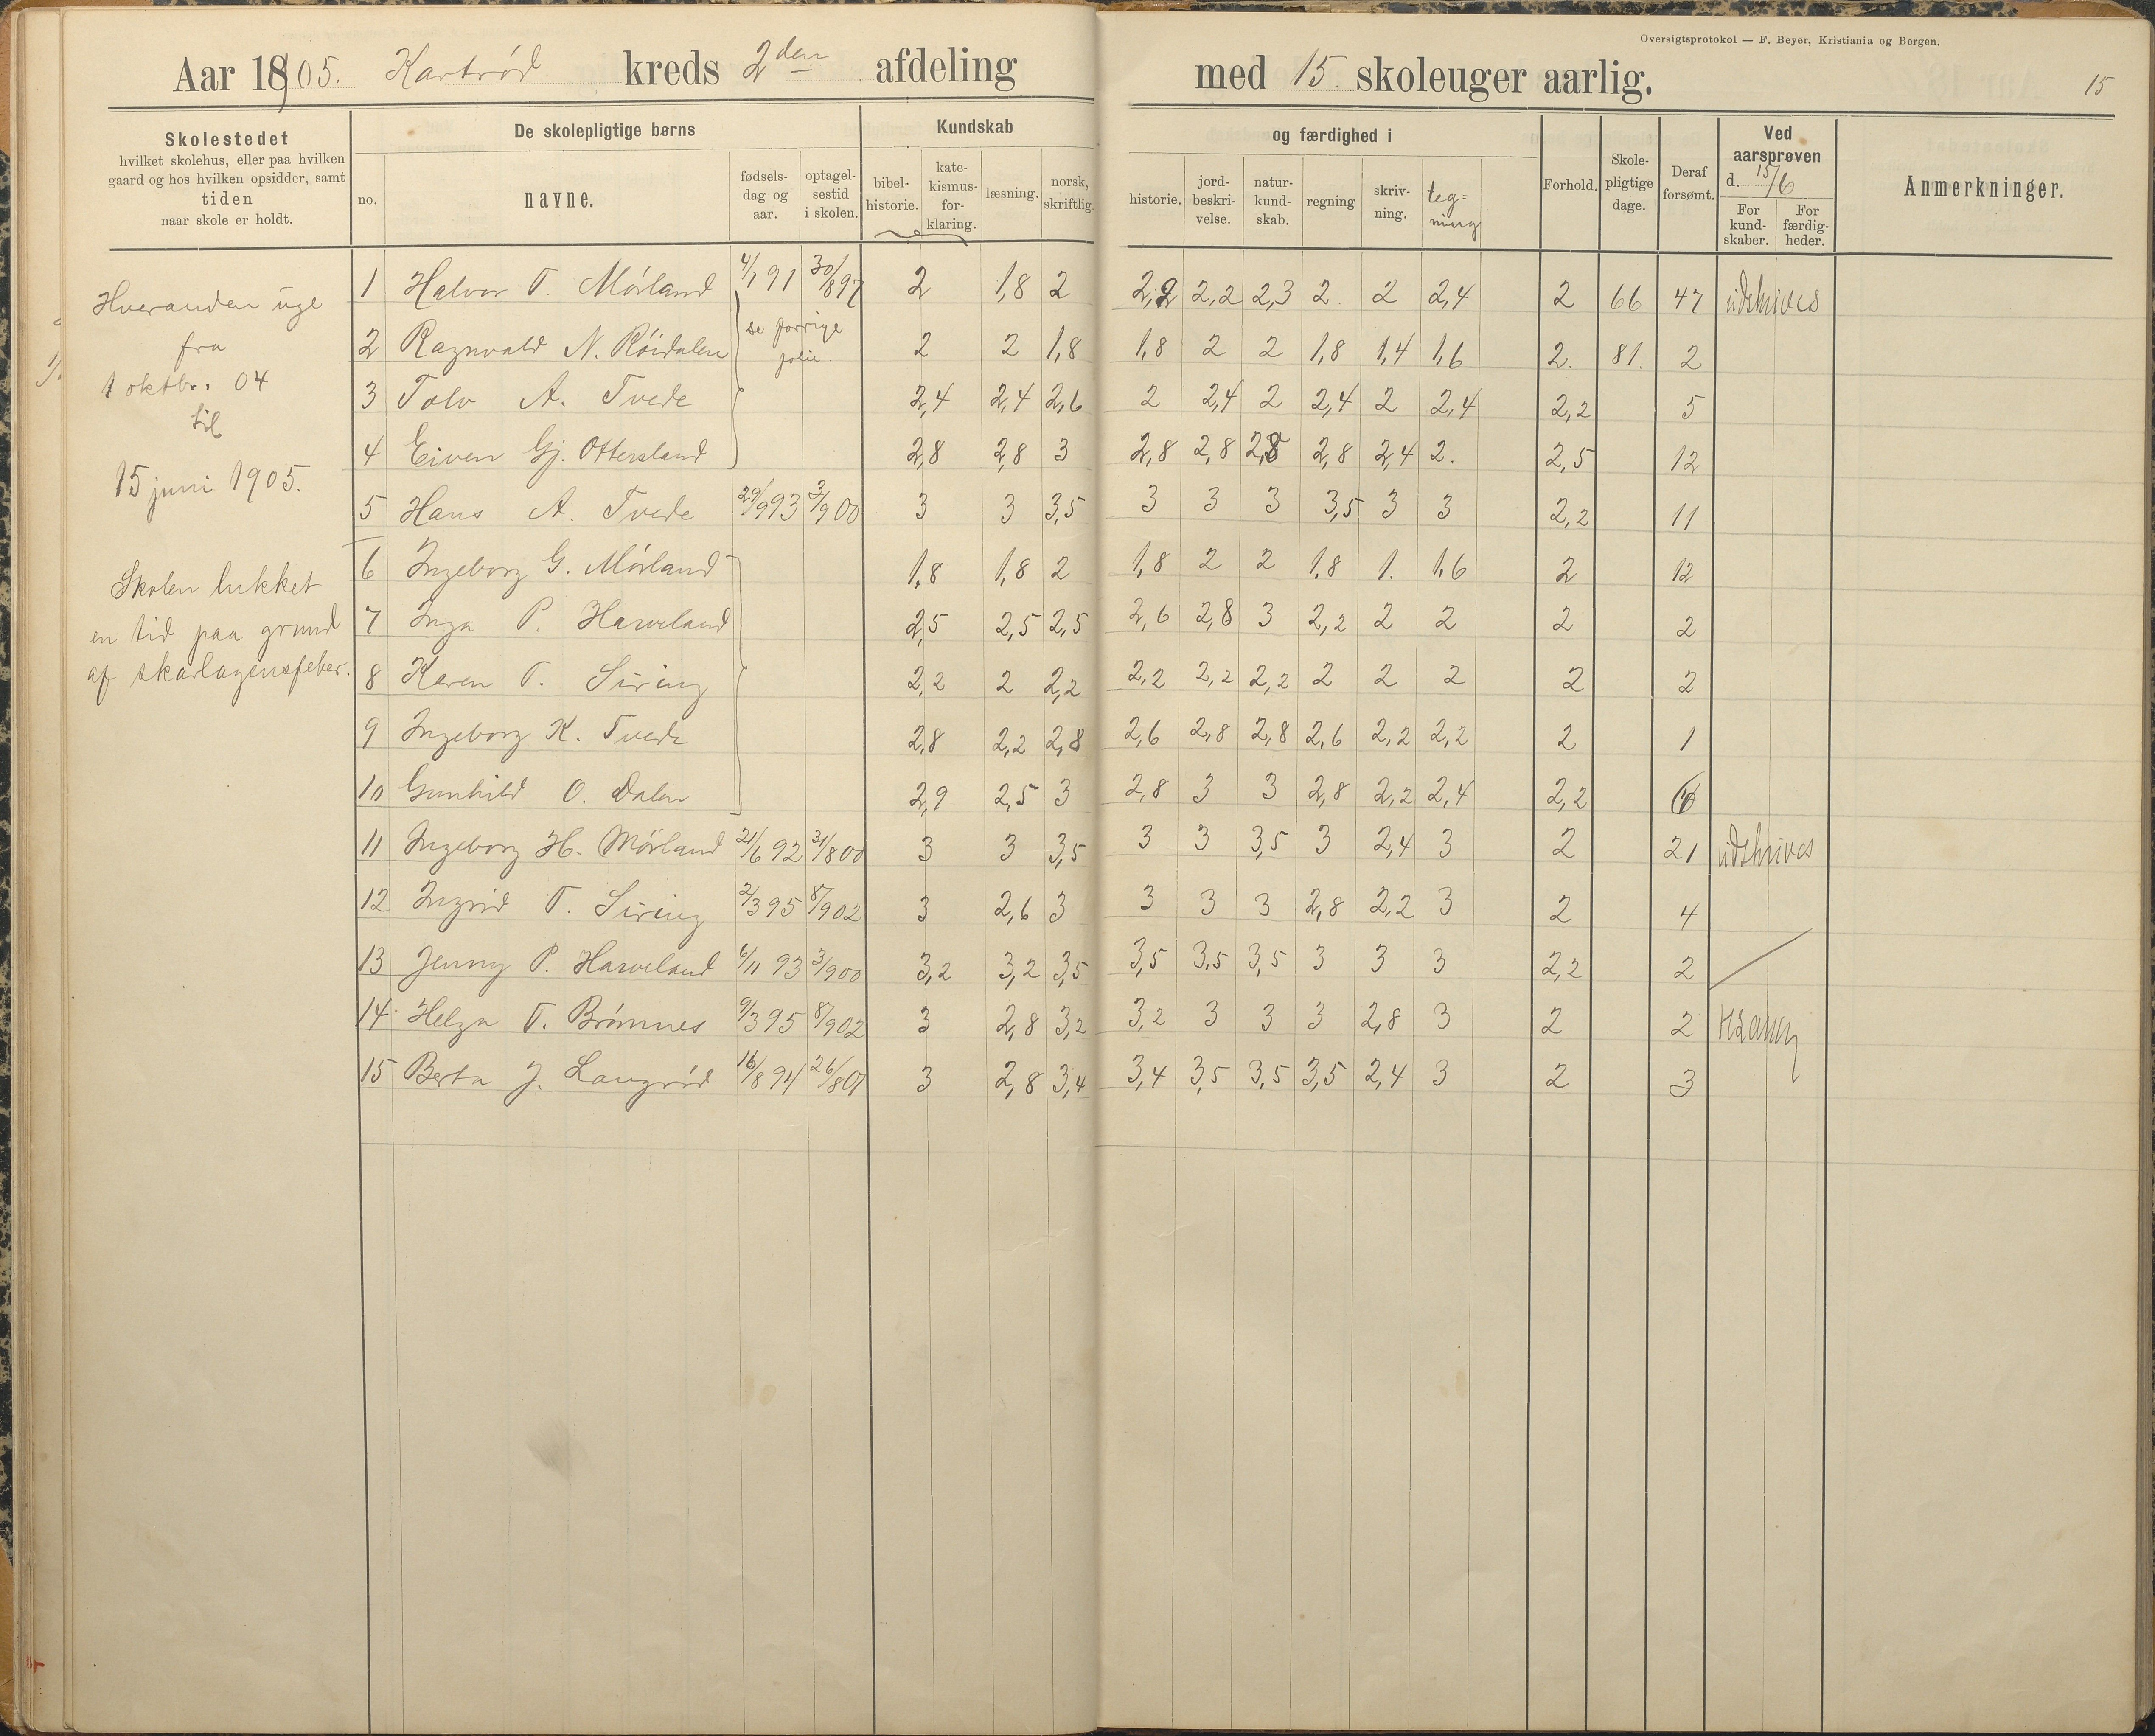 Oversigtsprotokol — F. Beyer, Kristiania og Bergen.
Aar 1905. Kartrød kreds 2den afdeling med 15 skoleuger aarlig. 15
Skolestedet
hvilket skolehus, eller paa hvilken
gaard og hos hvilken opsidder, samt
tiden
naar skole er holdt.
De skolepligtige børns
no. navne. fødsels-dag og aar. optagel-sestid i skolen.
Kundskab og færdighed i
bibel-historie. kate-kismus-for-klaring. læsning. norsk, skriftlig. historie. jord-beskri-velse. natur-kund-skab. regning skriv-ning. teg=ning
Forhold. Skole-pligtige dage. Deraf forsømt.
Ved aarsprøven d. 15/6
For kund-skaber. For færdig-heder.
Anmerkninger.
Hveranden uge
fra
1 oktbr. 04
til
15 juni 1905.
Skolen lukket
en tid paa grund
af skarlagensfeber.
1 Halvor T. Mørland 4/1 91 30/8 97 2 1,8 2 2,2 2,2 2,3 2. 2 2,4 2 66 47 udskrives
se forrige
folie.
2 Ragnvald N. Røidalen 2 2 1,8 1,8 2 2 1,8 1,4 1,6 2. 81. 2
3 Tolv A. Tvede 2,4 2,4 2,6 2 2,4 2 2,4 2 2,4 2,2 5
4 Eiven Gj. Ottersland 2,8 2,8 3 2,8 2,8 2,8 2,8 2,4 2. 2,5 12
5 Hans A. Tvede 29/9 93 3/9 00 3 3 3,5 3 3 3 3,5 3 3 2,2 11
6 Ingeborg G. Mørland 1,8 1,8 2 1,8 2 2 1,8 1. 1,6 2 12
7 Inga P. Harveland 2,5 2,5 2,5 2,6 2,8 3 2,2 2 2 2 2
8 Karen T. Siring 2,2 2 2,2 2,2 2,2 2,2 2 2 2 2 2
9 Ingeborg K. Tvede 2,8 2,2 2,8 2,6 2,8 2,8 2,6 2,2 2,2 2 1
10 Gunhild O. Dalen 2,9 2,5 3 2,8 3 3 2,8 2,2 2,4 2,2
11 Ingeborg H. Mørland 21/6 92 31/8 00 3 3 3,5 3 3 3,5 3 2,4 3 2 21 udskrives
12 Ingrid T. Siring 2/3 95 8/9 02 3 2,6 3 3 3 3 2,8 2,2 3 2 4
13 Jenny P. Harveland 6/11 93 3/9 00 3,2 3,2 3,5 3,5 3,5 3,5 3 3 3 2,2 2
14. Helga T. Brømnes 9/3 95 8/9 02 3 2,8 3,2 3,2 3 3 3 2,8 3 2 2
15 Berta J. Langrød 16/8 94 26/8 01 3 2,8 3,4 3,4 3,5 3,5 3,5 2,4 3 2 3